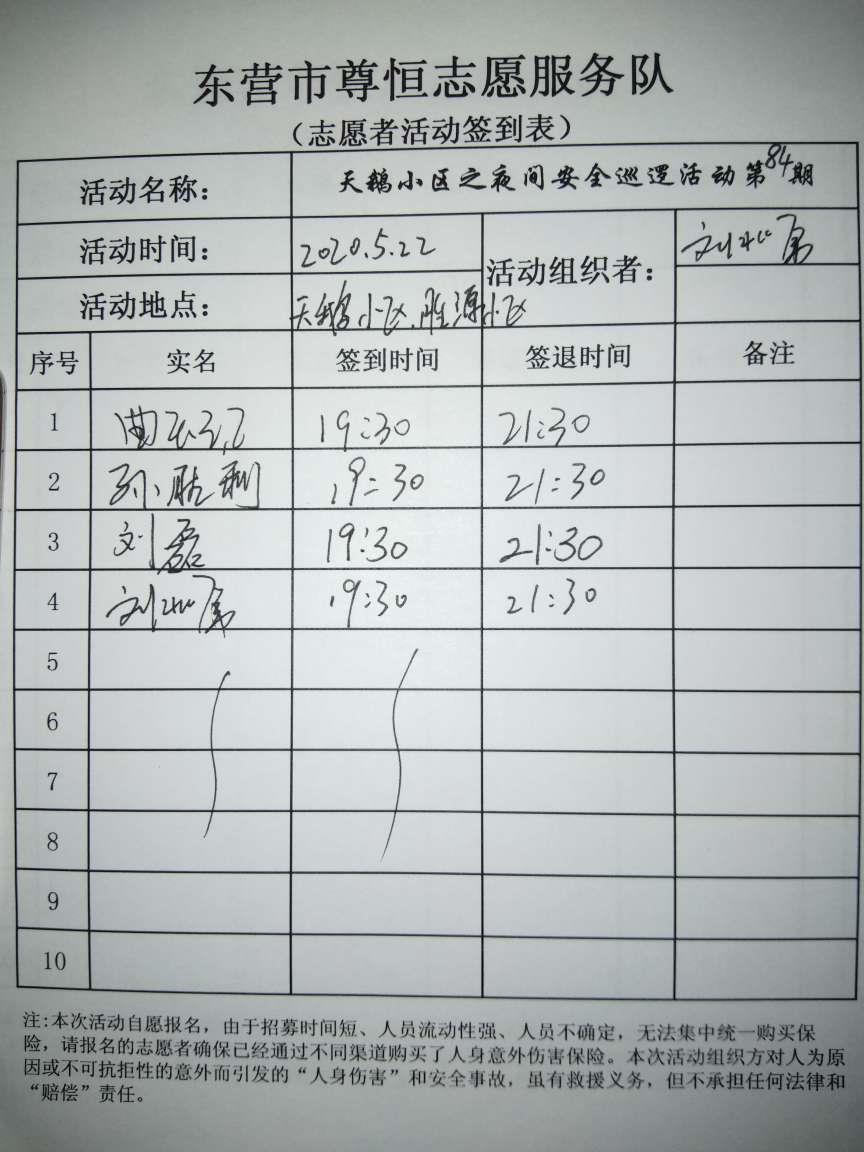 东营市尊恒志愿服务队
（志愿者活动签到表）
活动名称： 天鹅小区之夜间安全巡逻活动第84期
活动时间： 2020.5.22 活动组织者： 刘
活动地点： 天鹅小区、胜源小区
序号 实名 签到时间 签退时间 备注
1 曲 19:30 21:30
2 孙胜利 19:30 21:30
3 刘磊 19:30 21:30
4 刘 19:30 21:30
5
6
7
8
9
10
注:本次活动自愿报名，由于招募时间短、人员流动性强、人员不确定，无法集中统一购买保
险，请报名的志愿者确保已经通过不同渠道购买了人身意外伤害保险。本次活动组织方对人为原
因或不可抗拒性的意外而引发的“人身伤害”和安全事故，虽有救援义务，但不承担任何法律和
“赔偿”责任。